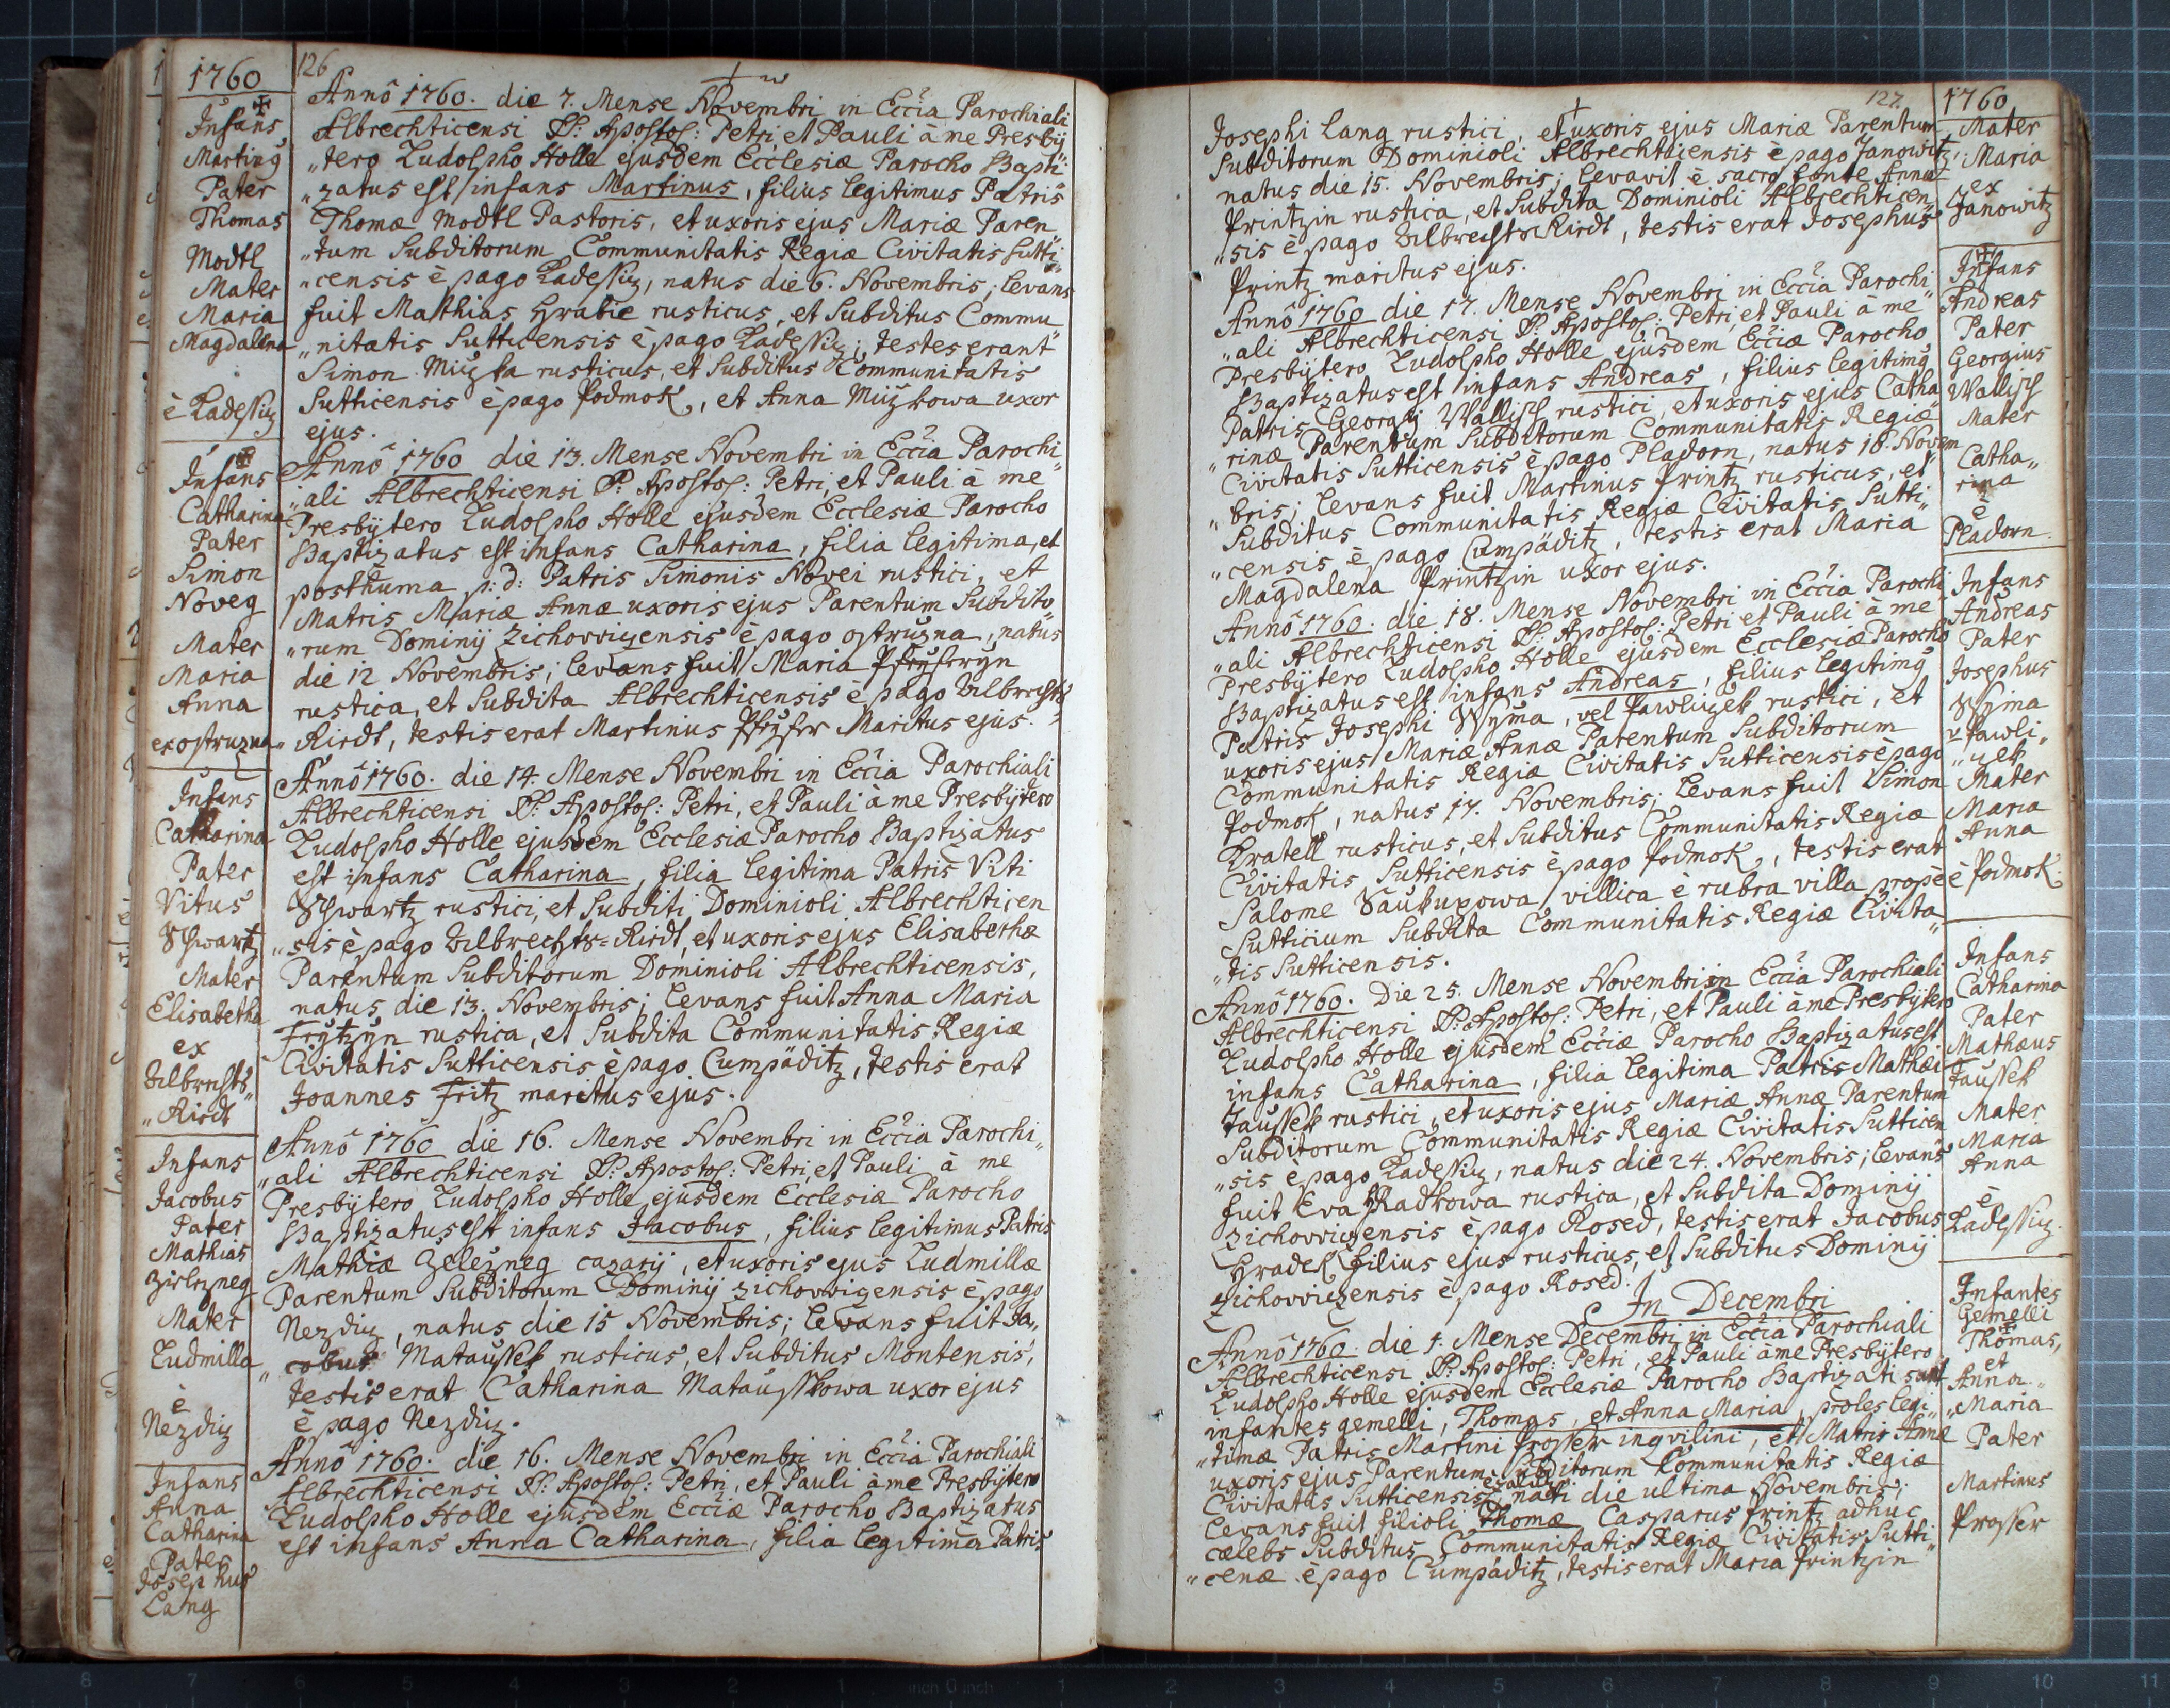 1760
Infans
Martin9
Pater
Thomas
Modtl
Mater
Maria
Magdalena
è Radessiz
126
Anno 1760. die 7. Mense Novembri in Eccia Parochiali
Albrechticensi SS: Apostol: Petri, et Pauli à me Presbÿ
"tero Ludolpho Holle ejusdem Ecclesiæ Parocho Bapti"
"zatus est infans Martinus, filius legitimus Patris
Thomæ Modtl Pastoris, et uxoris ejus Mariæ Paren
"tum Subditorum Communitatis Regiæ Civitatis Sutti"
"censis è pago Radessiz, natus die 6. Novembris; levans
fuit Mathias Hrabie rusticus, et Subditus Commu
"nitatis Sutticensis è pago Radessiz; testes erant
Simon Muzka rusticus, et Subditus Communitatis
Sutticensis è pago Podmok, et Anna Muzkowa uxor
ejus.
Infans
Catharina
Pater
Simon
Noveg
Mater
Maria
Anna
ex ostruzna
Anno 1760 die 13. Mense Novembri in Eccia Parochi"
"ali Albrechticensi SS: Apostol: Petri, et Pauli à me
Presbÿtero Ludolpho Holle ejusdem Ecclesiæ Parocho
Baptizatus est infans Catharina, filia legitima, et
posthuma p: d: Patris Simonis Novei rustici, et
Matris Mariæ Annæ uxoris ejus Parentum Subdito"
"rum Dominÿ Zichovvizensis è pago ostruzna, natus
die 12 Novembris; levans fuit Maria
rustica, et Subdita Albrechticensis è pago Albrechts
"Riedt, testis erat Martinus Maritus ejus.
Infans
Catharina
Pater
Vitus
Schwartz
Mater
Elisabetha
ex
Albrechts"
"Riedt
Anno 1760. die 14. Mense Novembri in Eccia Parochiali
Albrechticensi SS: Apostol: Petri, et Pauli à me Presbÿtero
Ludolpho Holle ejusdem Ecclesiæ Parocho Baptizatus
est infans Catharina, filia legitima Patris Viti
Schwartz rustici, et Subditi Dominioli Albrechticen
"sis è pago Albrechts=Riedt, et uxoris ejus Elisabethæ
Parentum Subditorum Dominioli Albrechticensis,
natus die 13. Novembris; levans fuit Anna Maria
Frÿtzÿn rustica, et Subdita Communitatis Regiæ
Civitatis Sutticensis è pago Cumpäditz, testis erat
Joannes Fritz maritus ejus.
Infans
Jacobus
Pater
Mathias
Zielezneg
Mater
Ludmilla
è
Nezdiz
Anno 1760 die 16. Mense Novembri in Eccia Parochi"
"ali Albrechticensi SS: Apostol: Petri, et Pauli à me
Presbÿtero Ludolpho Holle ejusdem Ecclesiæ Parocho
Baptizatus est infans Jacobus, filius legitimus Patris
Mathiæ Zelezneg cazarÿ, et uxoris ejus Ludmillæ
Parentum Subditorum Dominÿ Zichovvizensis è pago
Nezdiz, natus die 15 Novembris; levans fuit Ja"
"cobus Mataussek rusticus, et Subditus Montensis,
testis erat Catharina Matausskowa uxor ejus
è pago Nezdiz.
Infans
Anna
Catharina
Pater
Josephus
Lang
Anno 1760. die 16. Mense Novembri in Eccia Parochiali
Albrechticensi SS: Apostol: Petri, et Pauli à me Presbÿtero
Ludolpho Holle ejusdem Ecciæ Parocho Baptizatus
est infans Anna Catharina, filia legitima Patris
127. 1760
Josephi Lang rustici, et uxoris ejus Mariæ Parentum
Subditorum Dominioli Albrechticensis è pago Janowitz,
natus die 15. Novembris; levavit è sacro fonte Anna
Printzin rustica, et Subdita Dominioli Albrechticen"
"sis è pago Albrechts Riedt, testis erat Josephus
Printz maritus ejus.
Mater
Maria
ex
Janowitz
Anno 1760 die 17. Mense Novembri in Eccia Parochi"
"ali Albrechticensi SS: Apostol: Petri, et Pauli à me
Presbÿtero Ludolpho Holle ejusdem Ecciæ Parocho
Baptizatus est infans Andreas, filius legitim9
Patris Georgÿ Wallisch rustici, et uxoris ejus Catha
"rinæ Parentum Subditorum Communitatis Regiæ
Civitatis Sutticensis è pago Pladorn, natus 16. Novem
"bris; levans fuit Martinus Printz rusticus, et
Subditus Communitatis Regiæ Civitatis Sutti"
"censis è pago Cumpäditz, testis erat Maria
Magdalena Printzin uxor ejus.
Infans
Andreas
Pater
Georgius
Wallisch
Mater
Catha"
rina
è
Pladorn.
Anno 1760. die 18. Mense Novembri in Eccia Parochi
"ali Albrechticensi SS: Apostol: Petri et Pauli à me
Presbÿtero Ludolpho Holle ejusdem Ecclesiæ Parocho
Baptizatus est infans Andreas, filius legitim9
Patris Josephi Wyma, vel Pawliczek rustici, et
uxoris ejus Mariæ Annæ Parentum Subditorum
Communitatis Regiæ Civitatis Sutticensis è pago
Podmok, natus 17. Novembris; levans fuit Simon
Kratell rusticus, et Subditus Communitatis Regiæ
Civitatis Sutticensis è pago Podmok, testis erat
Salome Saukupowa villica è rubra villa prope
Sutticium Subdita Communitatis Regiæ Civita"
"tis Sutticensis.
Infans
Andreas
Pater
Josephus
Wyma
v Pawli"
"zek
Mater
Maria
Anna
è Podmok.
Anno 1760. Die 25. Mense Novembris in Eccia Parochiali
Albrechticensi SS: Apostol: Petri, et Pauli à me Presbÿtero
Ludolpho Holle ejusdem Ecciæ Parocho Baptizatus est
infans Catharina, filia legitima Patris Mathæi
Jaussek rustici, et uxoris ejus Mariæ Annæ Parentum
Subditorum Communitatis Regiæ Civitatis Sutticen
"sis è pago Radessiz, natus die 24. Novembris; levans
fuit Eva Hradkowa rustica, et Subdita Dominÿ
Zichovvizensis è pago Rosed, testis erat Jacobus
Hradek filius ejus rusticus, et Subditus Dominÿ
Zichovvizensis è pago Rosed.
Infans
Catharina
Pater
Mathæus
Jaussek
Mater
Maria
Anna
è
Radessiz.
In Decembri
Anno 1760. die 1. Mense Decembri in Eccia Parochiali
Albrechticensi SS: Apostol: Petri, et Pauli à me Presbÿtero
Ludolpho Holle ejusdem Ecclesiæ Parocho Baptizati sunt
infantes gemelli, Thomas, et Anna Maria, proles legi"
"timæ Patris Martini Prosser inqvilini, et Matris Annæ
uxoris ejus Parentum Subditorum Communitatis Regiæ
Civitatis Sutticensis nati die ultima Novembris;
levans fuit filioli Thomæ Casparus Printz adhuc
cælebs Subditus Communitatis Regiæ Civitatis Sutti"
"cenæ è pago Cumpäditz, testis erat Maria Printzin
Infantes
Gemelli
Thomas,
et
Anna"
"Maria
Pater
Martinus
Prosser